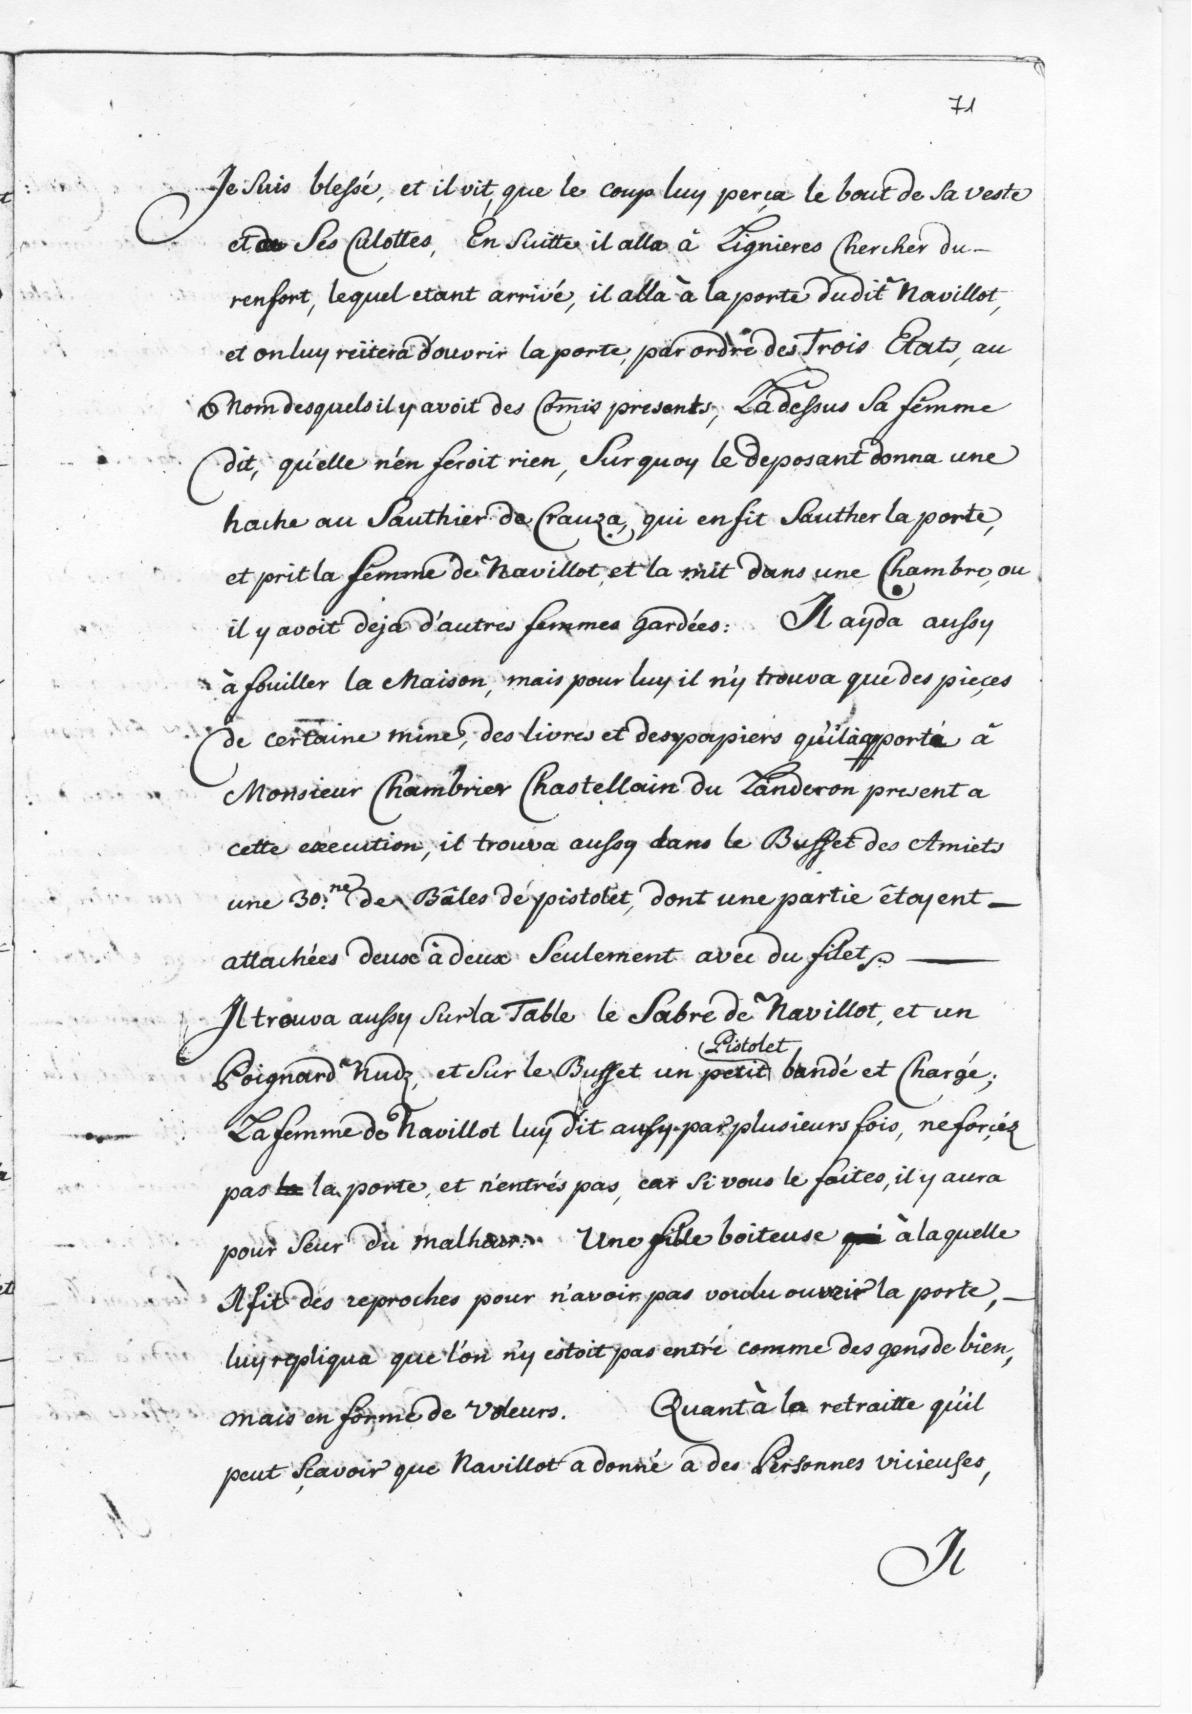 71
Je suis blessé, et il vit, que le coup luy perça le bout de sa veste
et de ses Culottes, En suitte il alla à Lignieres Chercher du
renfort, lequel etant arrivé, il alla à la porte dudit Navillot,
et on luy reitera d'ouvrir la porte, par ordre des Trois Etats, au
Nom desquels il y avoit des Com̄is presents, La dessus sa fem̄me
dit, qu'elle n'en feroit rien, Sur quoy le deposant donna une
hache au Sauthier de Crauza, qui en fit Sauther la porte,
et prit la fem̄me de Navillot, et la mit dans une Chambre, ou
il y avoit deja d'autres femmes gardées: Il ayda aussy
à fouiller la Maison, mais pour luy il n'y trouva que des pieçes
de certaine mine, des livres et des papiers qu'il apporta à
Monsieur Chambrier Chastellain du Landeron present a
cette execution, il trouva aussy dans le Buffet des Amiets
une 30.ne de Bâles de pistolet, dont une partie êtoyent
attachées deux à deux Seulement avec du filet.
Il trouva aussy sur la Table le Sabre de Navillot, et un
Poignard Nudz, et sur le Buffet un petit Pistolet bandé et Chargé;
La femme de Navillot luy dit aussy par plusieurs fois, ne forçéz
pas la la porte, et n'entrés pas, car si vous le faites, il y aura
pour seur du malheur. Une fille boiteuse qui à laquelle
Il fit des reproches pour n'avoir pas voulu ouvrir la porte,
luy repliqua que l'on n'y estoit pas entré comme des gens de bien,
mais en forme de voleurs. Quant à la retraitte qu'il
peut sçavoir que Navillot a donné a des Personnes vicieuses,
Il